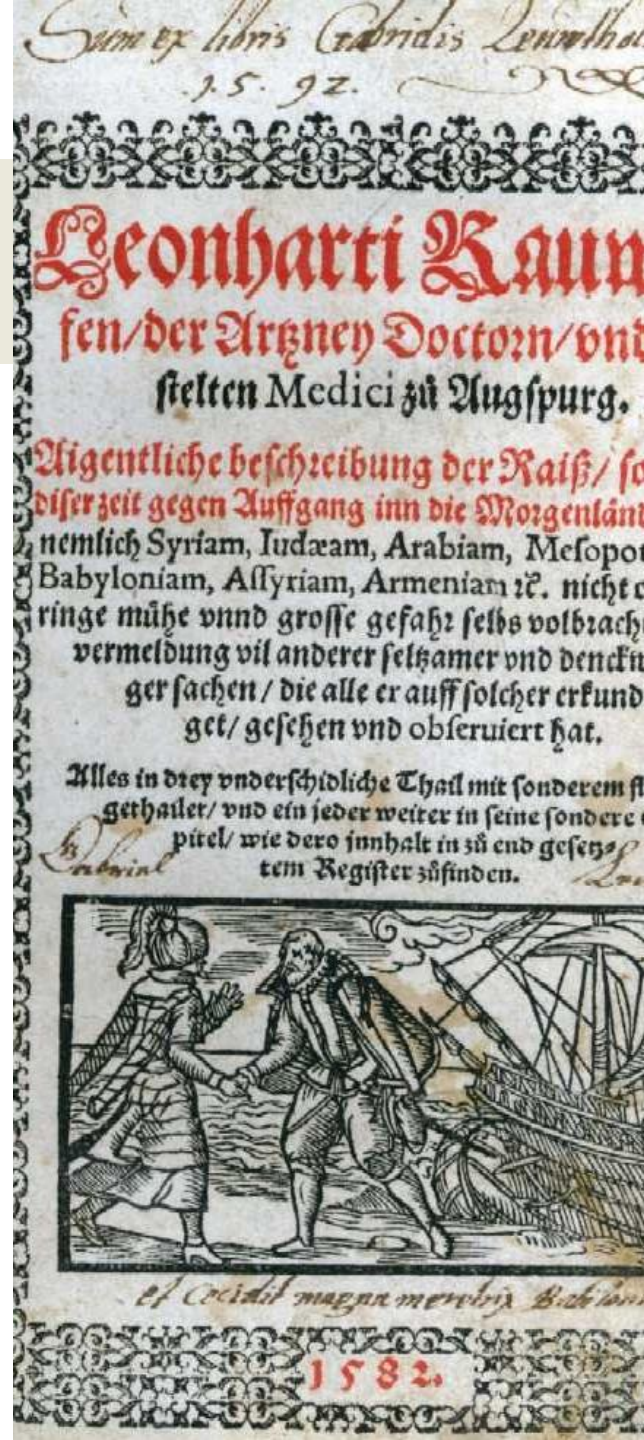 Sum ex libris Gabrielis
1592.
Leonharti Rauw
fen/der Artzney Doctorn/vnd
stelten Medici zů Augspurg.
Aigentliche beschreibung der Raiß/ so
diser zeit gegen Auffgang inn die Morgenländ
nemlich Syriam, Iudæam, Arabiam, Mesopot
Babyloniam, Assyriam, Armeniam ꝛc. nicht o
ringe mühe vnnd grosse gefahr selbs volbrach
vermeldung vil anderer seltzamer vnd denckw
ger sachen / die alle er auff solcher erkund
get/ gesehen vnd obseruiert hat.
Alles in drey vnderschidliche Thail mit sonderem fl
gethailet/ vnd ein jeder weiter in seine sondere
pitel/ wie dero innhalt in zů end gesetz⸗
tem Register zůfinden.
Gabriel
et cecidit magna meretrix Babilon
1582.